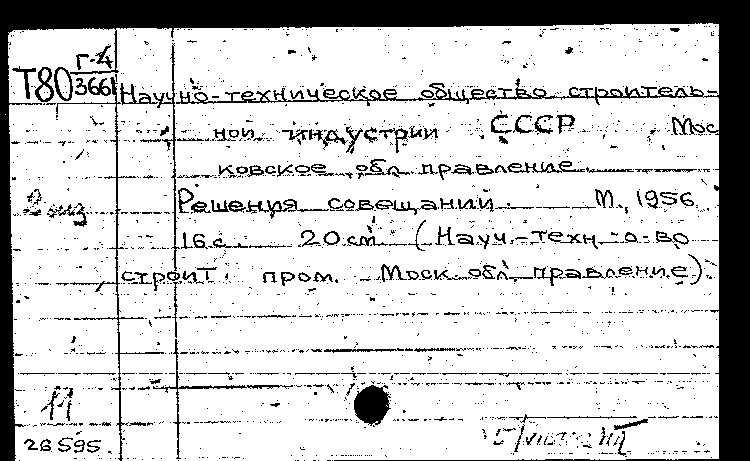 Г-4
Т80 3661 Научно-техническое общество строитель-
ной индустрии СССР Мос
ковское обл. правление.
2 экз Решения совещаний. М., 1956
16 с. 20 см. (Науч.-техн. о-во
строит. пром. Моск. обл. правление).
11
28595